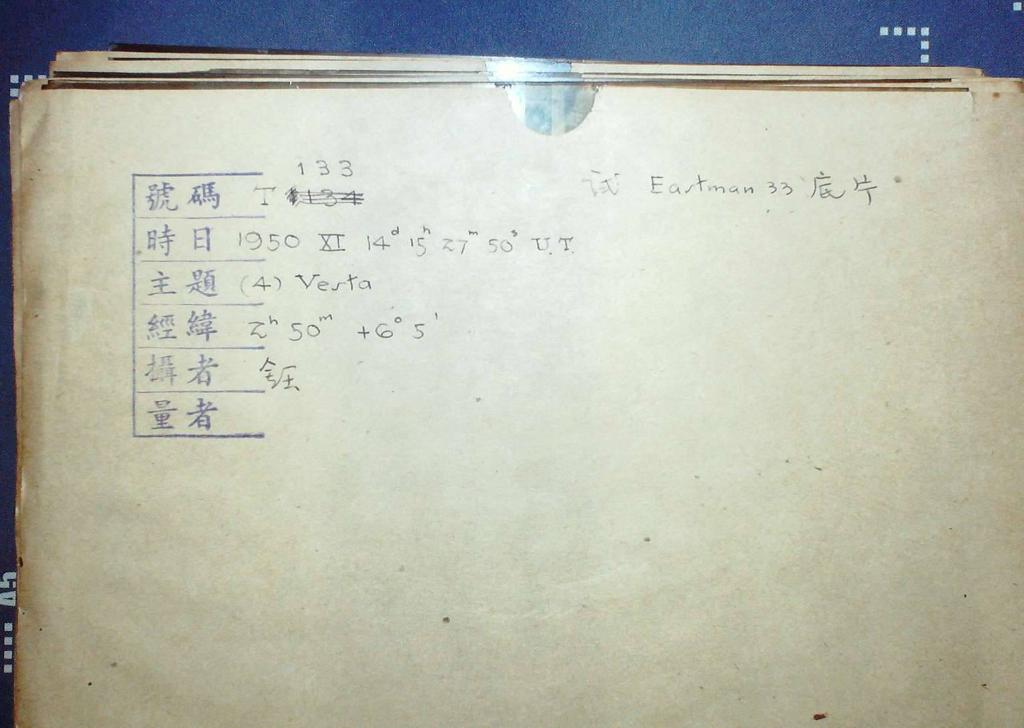 133
號碼 T 1134 试 Eastman 33 底片
時日 1950 XI 14ᵈ 15ʰ 27ᵐ 50ˢ U.T.
主題 (4) Vesta
經緯 2ʰ 50ᵐ +6° 5'
攝者 鈺
量者
A5